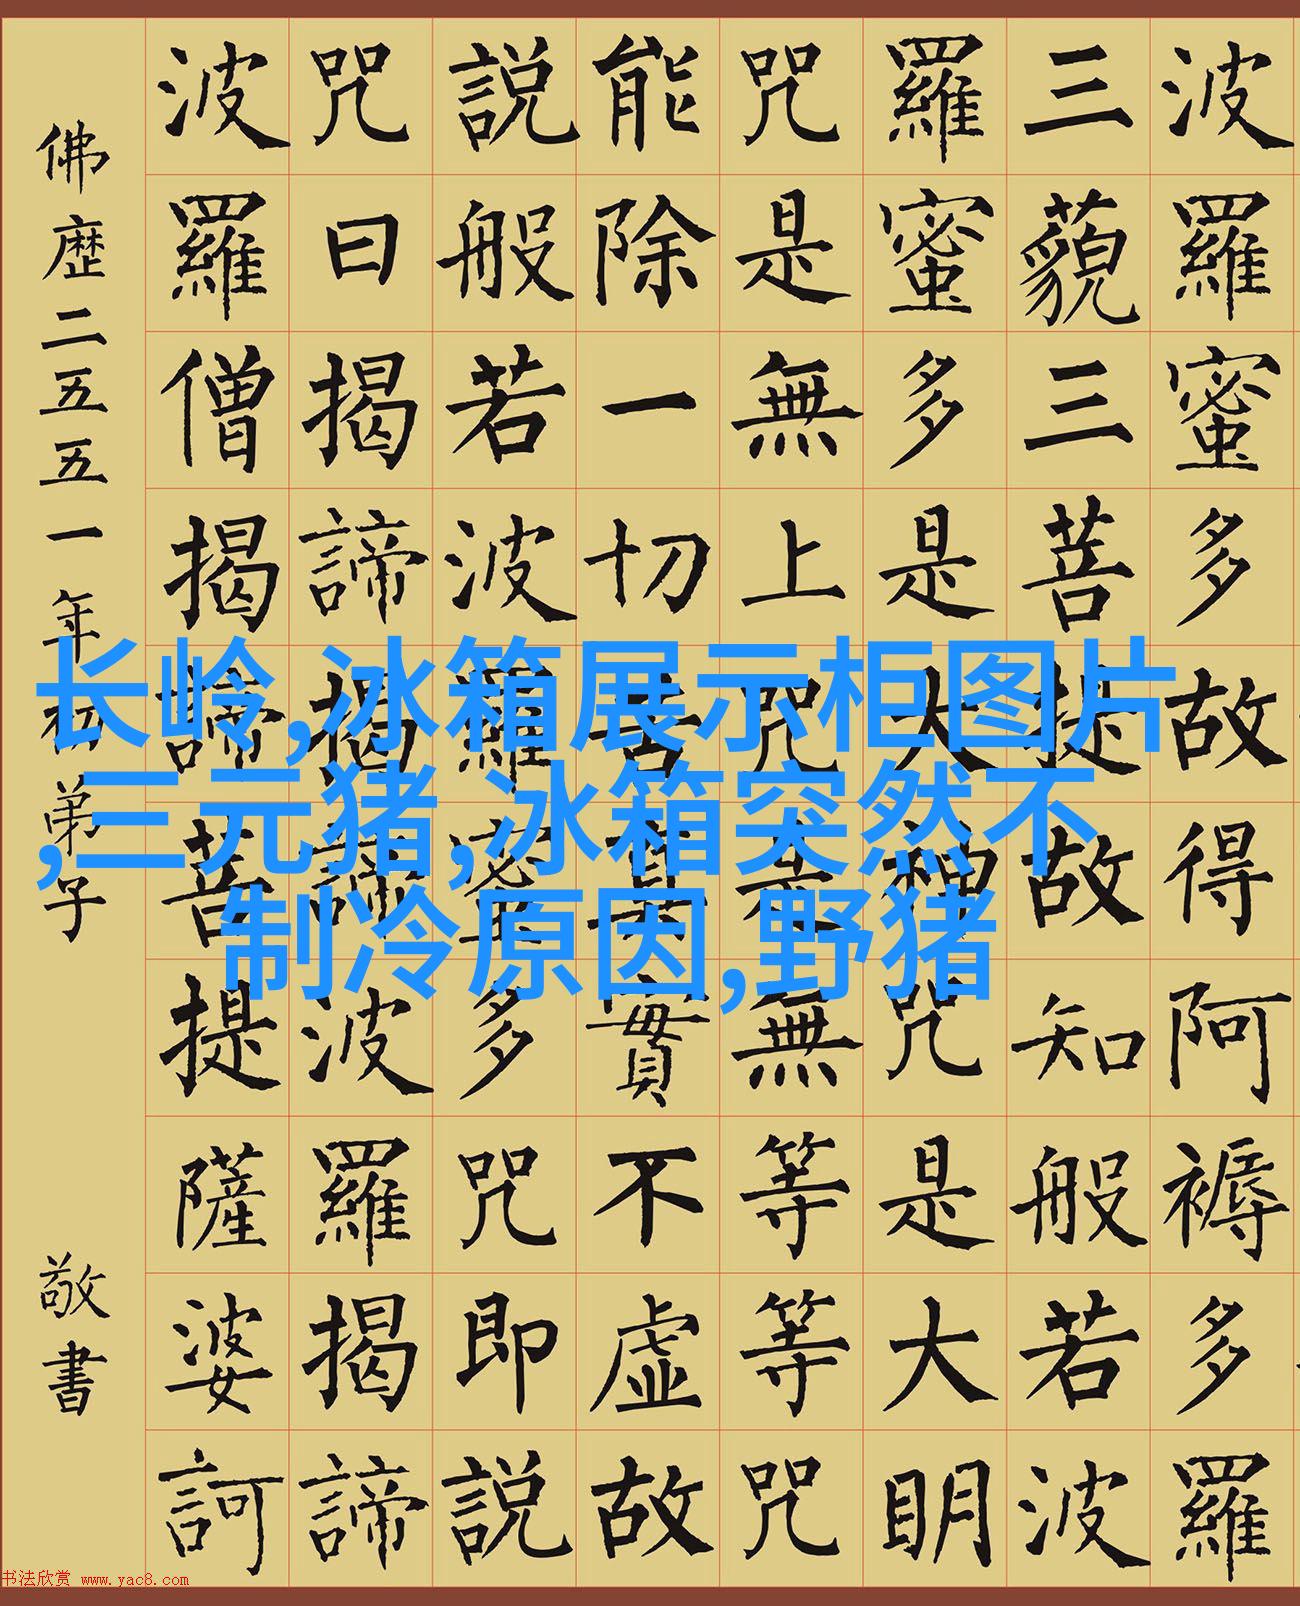 波羅蜜多故得阿褥多羅
三藐三菩提故知般若波
羅蜜多是大神咒是大明
咒是無上咒是無等等咒
能除一切苦真實不虛故
説般若波羅蜜多咒即説
咒曰揭諦揭諦波羅揭諦
波羅僧揭諦菩提薩婆訶
佛歷二五五一年弟子 敬書
长岭,冰箱展示柜图片
,三元猪,冰箱突然不
制冷原因,野猪
书法欣赏 www.yac8.com